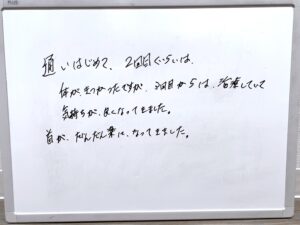 通いはじめて、2回目ぐらいは、
体が、きつかったですが、3回目からは、治療していて
気持ちが、良くなってきました。
首が、だんだん楽に、なってきました。